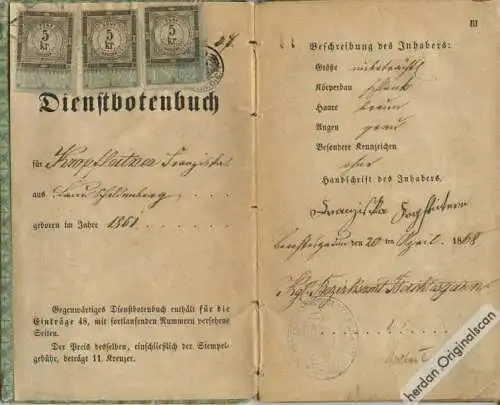 5 kr. 5 kr. 5 kr.
Dienstbotenbuch
für Franziska
aus Landschellenberg
geboren im Jahre 1861
Gegenwärtiges Dienstbotenbuch enthält für die
Einträge 48, mit fortlaufenden Nummern versehene
Seiten.
Der Preis desselben, einschließlich der Stempel-
gebühr, beträgt 11. Kreuzer.
III
Beschreibung des Inhabers:
Größe
Körperbau schlank
Haare braun
Augen grau
Besondere Kennzeichen
ohne
Handschrift des Inhabers.
Franziska
Berchtesgaden den 20 ten April 1868
Kgl. Bezirksamt Berchtesgaden
herdan Originalscan